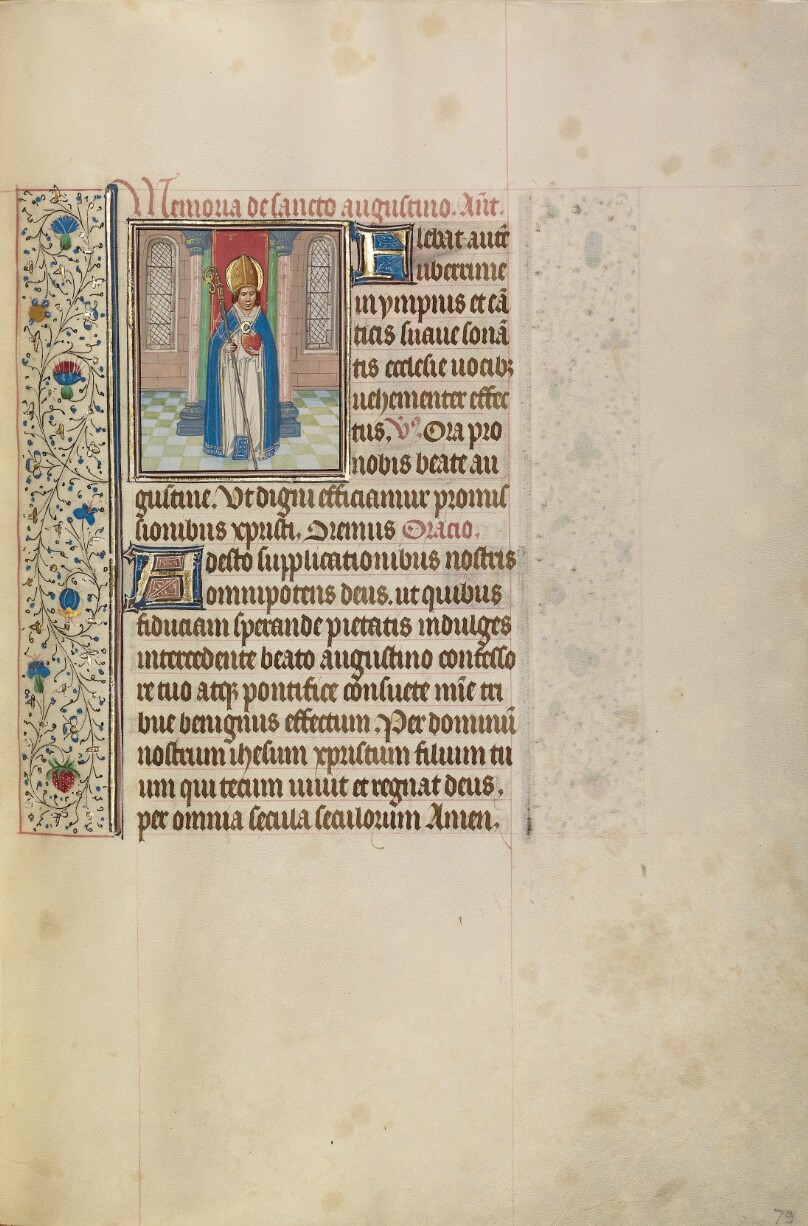 Memoria de sancto augustino. Añt.
Flebat autē
uberrime
in ympnis et cā
ticis suave sonā
tis ecclesie vocibꝫ
vehementer effec
tus. V̊. Ora pro
nobis beate au
gustine. Vt digni efficiamur promis
sionibus xpristi. Oremus Oracio.
Adesto supplicationibus nostris
omnipotens deus. ut quibus
fiduciam sperande pietatis indulges
intercedente beato augustino confesso
re tuo atqꝫ pontifice consuete mīe tri
bue benignus effectum. Per dominū
nostrum ihesum xpristum filium tu
um qui tecum vivit et regnat deus.
per omnia secula seculorum Amen.
79